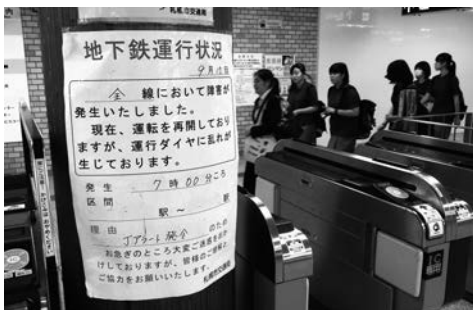 札幌市交通局
地下鉄運行状況
9月15日
全 線において障害が
発生いたしました。
現在、運転を再開しており
ますが、運行ダイヤに乱れが
生じております。
発生 7時00分ころ
区間 駅～ 駅
理由 Jアラート発令 のため
お急ぎのところ大変ご迷惑をおか
けしておりますが、皆様のご理解と
ご協力をお願いいたします。
札幌市交通局
IC